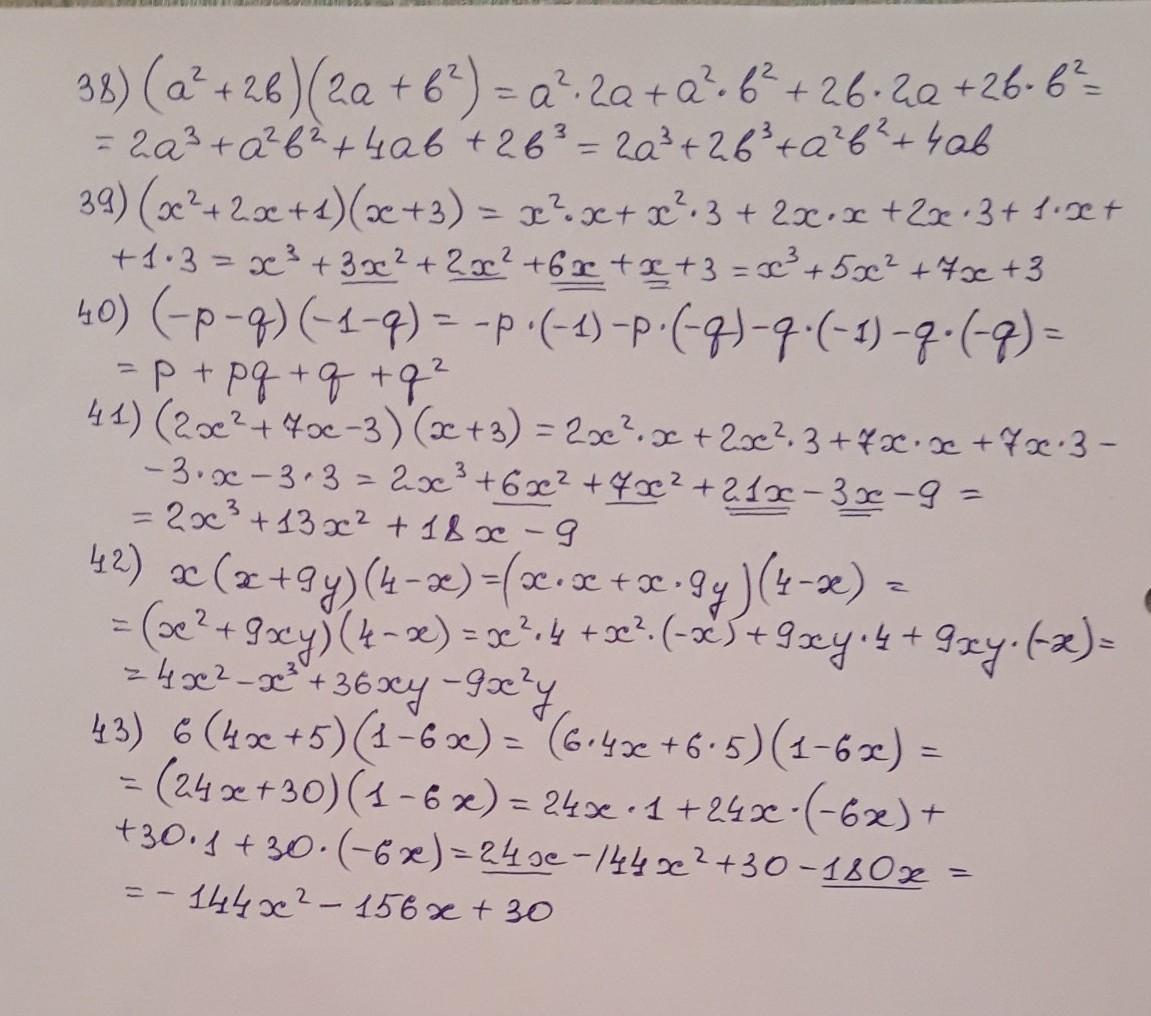 38) (a² + 2b)(2a + b²) = a²·2a + a²·b² + 2b·2a + 2b·b² =
= 2a³ + a²b² + 4ab + 2b³ = 2a³ + 2b³ + a²b² + 4ab
39) (x² + 2x + 1)(x + 3) = x²·x + x²·3 + 2x·x + 2x·3 + 1·x +
+ 1·3 = x³ + 3x² + 2x² + 6x + x + 3 = x³ + 5x² + 7x + 3
40) (-p - q)(-1 - q) = -p·(-1) - p·(-q) - q·(-1) - q·(-q) =
= p + pq + q + q²
41) (2x² + 7x - 3)(x + 3) = 2x²·x + 2x²·3 + 7x·x + 7x·3 -
- 3·x - 3·3 = 2x³ + 6x² + 7x² + 21x - 3x - 9 =
= 2x³ + 13x² + 18x - 9
42) x(x + 9y)(4 - x) = (x·x + x·9y)(4 - x) =
= (x² + 9xy)(4 - x) = x²·4 + x²·(-x) + 9xy·4 + 9xy·(-x) =
= 4x² - x³ + 36xy - 9x²y
43) 6(4x + 5)(1 - 6x) = (6·4x + 6·5)(1 - 6x) =
= (24x + 30)(1 - 6x) = 24x·1 + 24x·(-6x) +
+ 30·1 + 30·(-6x) = 24x - 144x² + 30 - 180x =
= - 144x² - 156x + 30